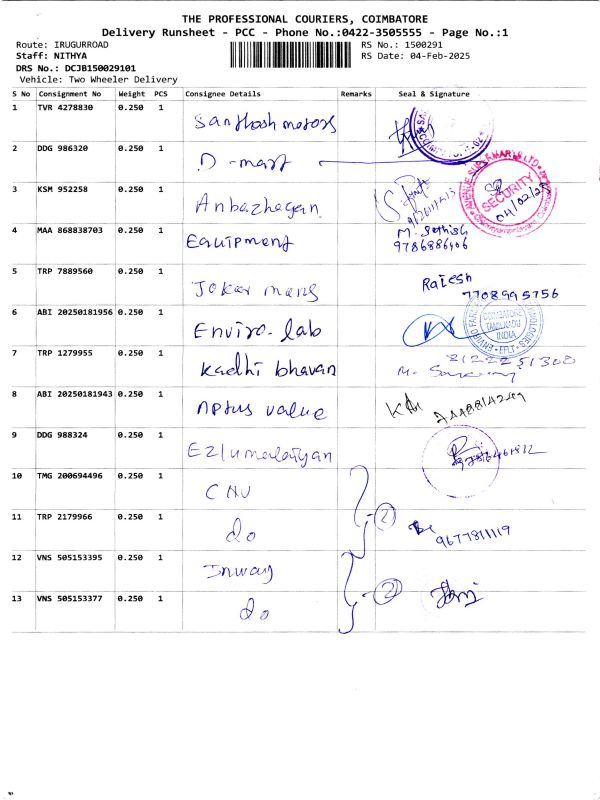 THE PROFESSIONAL COURIERS, COIMBATORE
Delivery Runsheet - PCC - Phone No.:0422-3505555 - Page No.:1
Route: IRUGURROAD RS No.: 1500291
Staff: NITHYA RS Date: 04-Feb-2025
DRS No.: DCJB150029101
Vehicle: Two Wheeler Delivery
S No Consignment No Weight PCS Consignee Details Remarks Seal & Signature
1 TVR 4278830 0.250 1 Santhosh motors
2 DDG 986320 0.250 1 D-mart SECURITY 04/02/25
3 KSM 952258 0.250 1 Anbazhagan
4 MAA 868838703 0.250 1 Equipment M. Sathish
9786886406
5 TRP 7889560 0.250 1 Rajesh
7708995756
6 ABI 20250181956 0.250 1 Enviro-lab COIMBATORE TAMILNADU INDIA
7 TRP 1279955 0.250 1 Kadhi bhavan
8 ABI 20250181943 0.250 1 Aptus value
9 DDG 988324 0.250 1 Ezhumalaiyan
10 TMG 200694496 0.250 1 CNU
11 TRP 2179966 0.250 1 do 2
9677811119
12 VNS 505153395 0.250 1 Inway
13 VNS 505153377 0.250 1 do 2